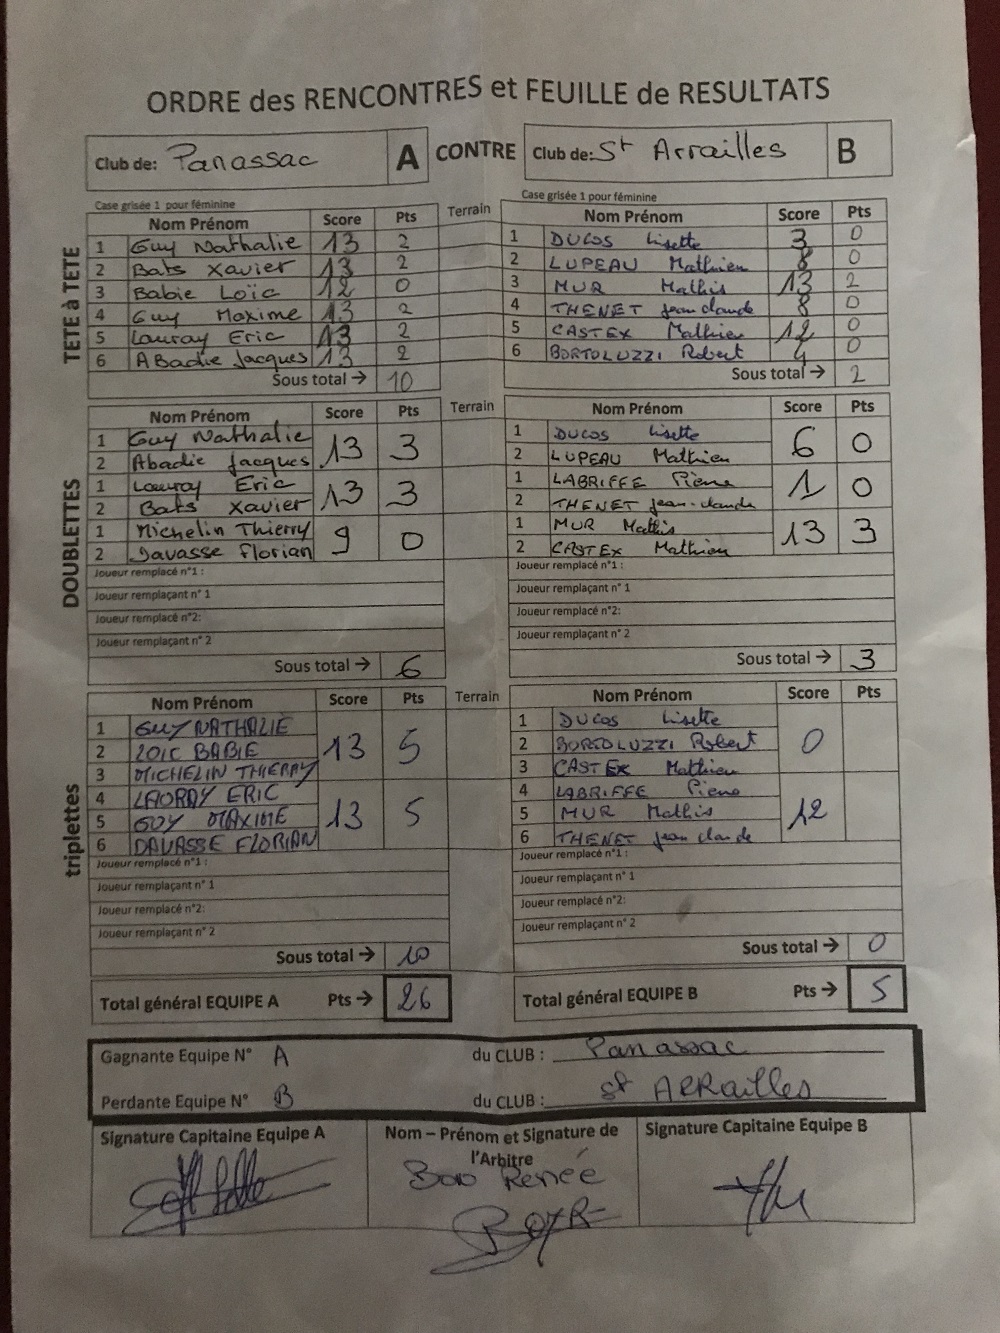 ORDRE des RENCONTRES et FEUILLE de RESULTATS
Club de: Panassac A CONTRE Club de: St Arrailles B
Case grisée 1 pour féminine Case grisée 1 pour féminine
TETE à TETE
Nom Prénom Score Pts Terrain Nom Prénom Score Pts
1 Guy Nathalie 13 2 1 DUCOS Lisette 3 0
2 Bats Xavier 13 2 2 LUPEAU Mathieu 8 0
3 Babie Loïc 12 0 3 MUR Mathis 13 2
4 Guy Maxime 13 2 4 THENET Jean claude 8 0
5 Lauray Eric 13 2 5 CASTEX Mathieu 12 0
6 Abadie Jacques 13 2 6 BORTOLUZZI Robert 4 0
Sous total → 10 Sous total → 2
DOUBLETTES
Nom Prénom Score Pts Terrain Nom Prénom Score Pts
1 Guy Nathalie 13 3 1 DUCOS Lisette 6 0
2 Abadie Jacques 2 LUPEAU Mathieu
1 Lauray Eric 13 3 1 LABRIFFE Piene 1 0
2 Bats Xavier 2 THENET Jean-claude
1 Michelin Thierry 9 0 1 MUR Mathis 13 3
2 Davasse Florian 2 CASTEX Mathieu
Joueur remplacé n°1 : Joueur remplacé n°1 :
Joueur remplaçant n° 1 Joueur remplaçant n° 1
Joueur remplacé n°2: Joueur remplacé n°2:
Joueur remplaçant n° 2 Joueur remplaçant n° 2
Sous total → 6 Sous total → 3
triplettes
Nom Prénom Score Pts Terrain Nom Prénom Score Pts
1 GUY NATHALIE 13 5 1 DUCOS Lisette 0
2 LOIC BABIE 2 BORTOLUZZI Robert
3 MICHELIN THIERRY 3 CASTEX Mathieu
4 LAORAY ERIC 13 5 4 LABRIFFE Piene 12
5 GUY MAXIME 5 MUR Mathis
6 DAVASSE FLORIAN 6 THENET Jean claude
Joueur remplacé n°1 : Joueur remplacé n°1 :
Joueur remplaçant n° 1 Joueur remplaçant n° 1
Joueur remplacé n°2: Joueur remplacé n°2:
Joueur remplaçant n° 2 Joueur remplaçant n° 2
Sous total → 10 Sous total → 0
Total général EQUIPE A Pts → 26 Total général EQUIPE B Pts → 5
Gagnante Equipe N° A du CLUB : Panassac
Perdante Equipe N° B du CLUB : St ARRailles
Signature Capitaine Equipe A Nom – Prénom et Signature de l'Arbitre Signature Capitaine Equipe B
Renée